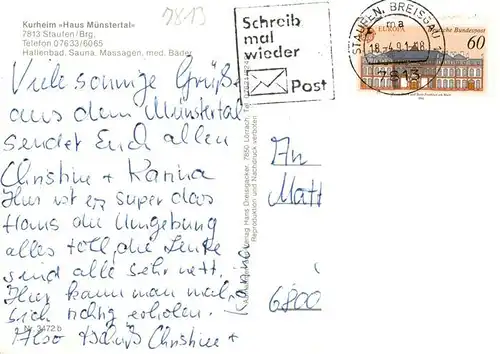 7813
Kurheim »Haus Münstertal«
7813 Staufen/Brg.
Telefon 07633/6065
Hallenbad, Sauna, Massagen, med. Bäder
Schreib
mal
wieder
Post
STAUFEN, BREISGAU
ma
18.-4.91-18
7813
EUROPA
Deutsche Bundespost
60
Viele sonnige Grüße
aus dem Münstertal
sendet Euch allen
Christine + Karina
Hier ist es super das
Haus die Umgebung
alles toll, die Leute
sind alle sehr nett.
Hier kann man mal
sich richtig erholen.
Also tschüß Christine +
Karina
Nr. 3472 b
Verlag Hans Dreisigacker, 7850 Lörrach,
Reproduktion und Nachdruck verboten
An
Matt
6800